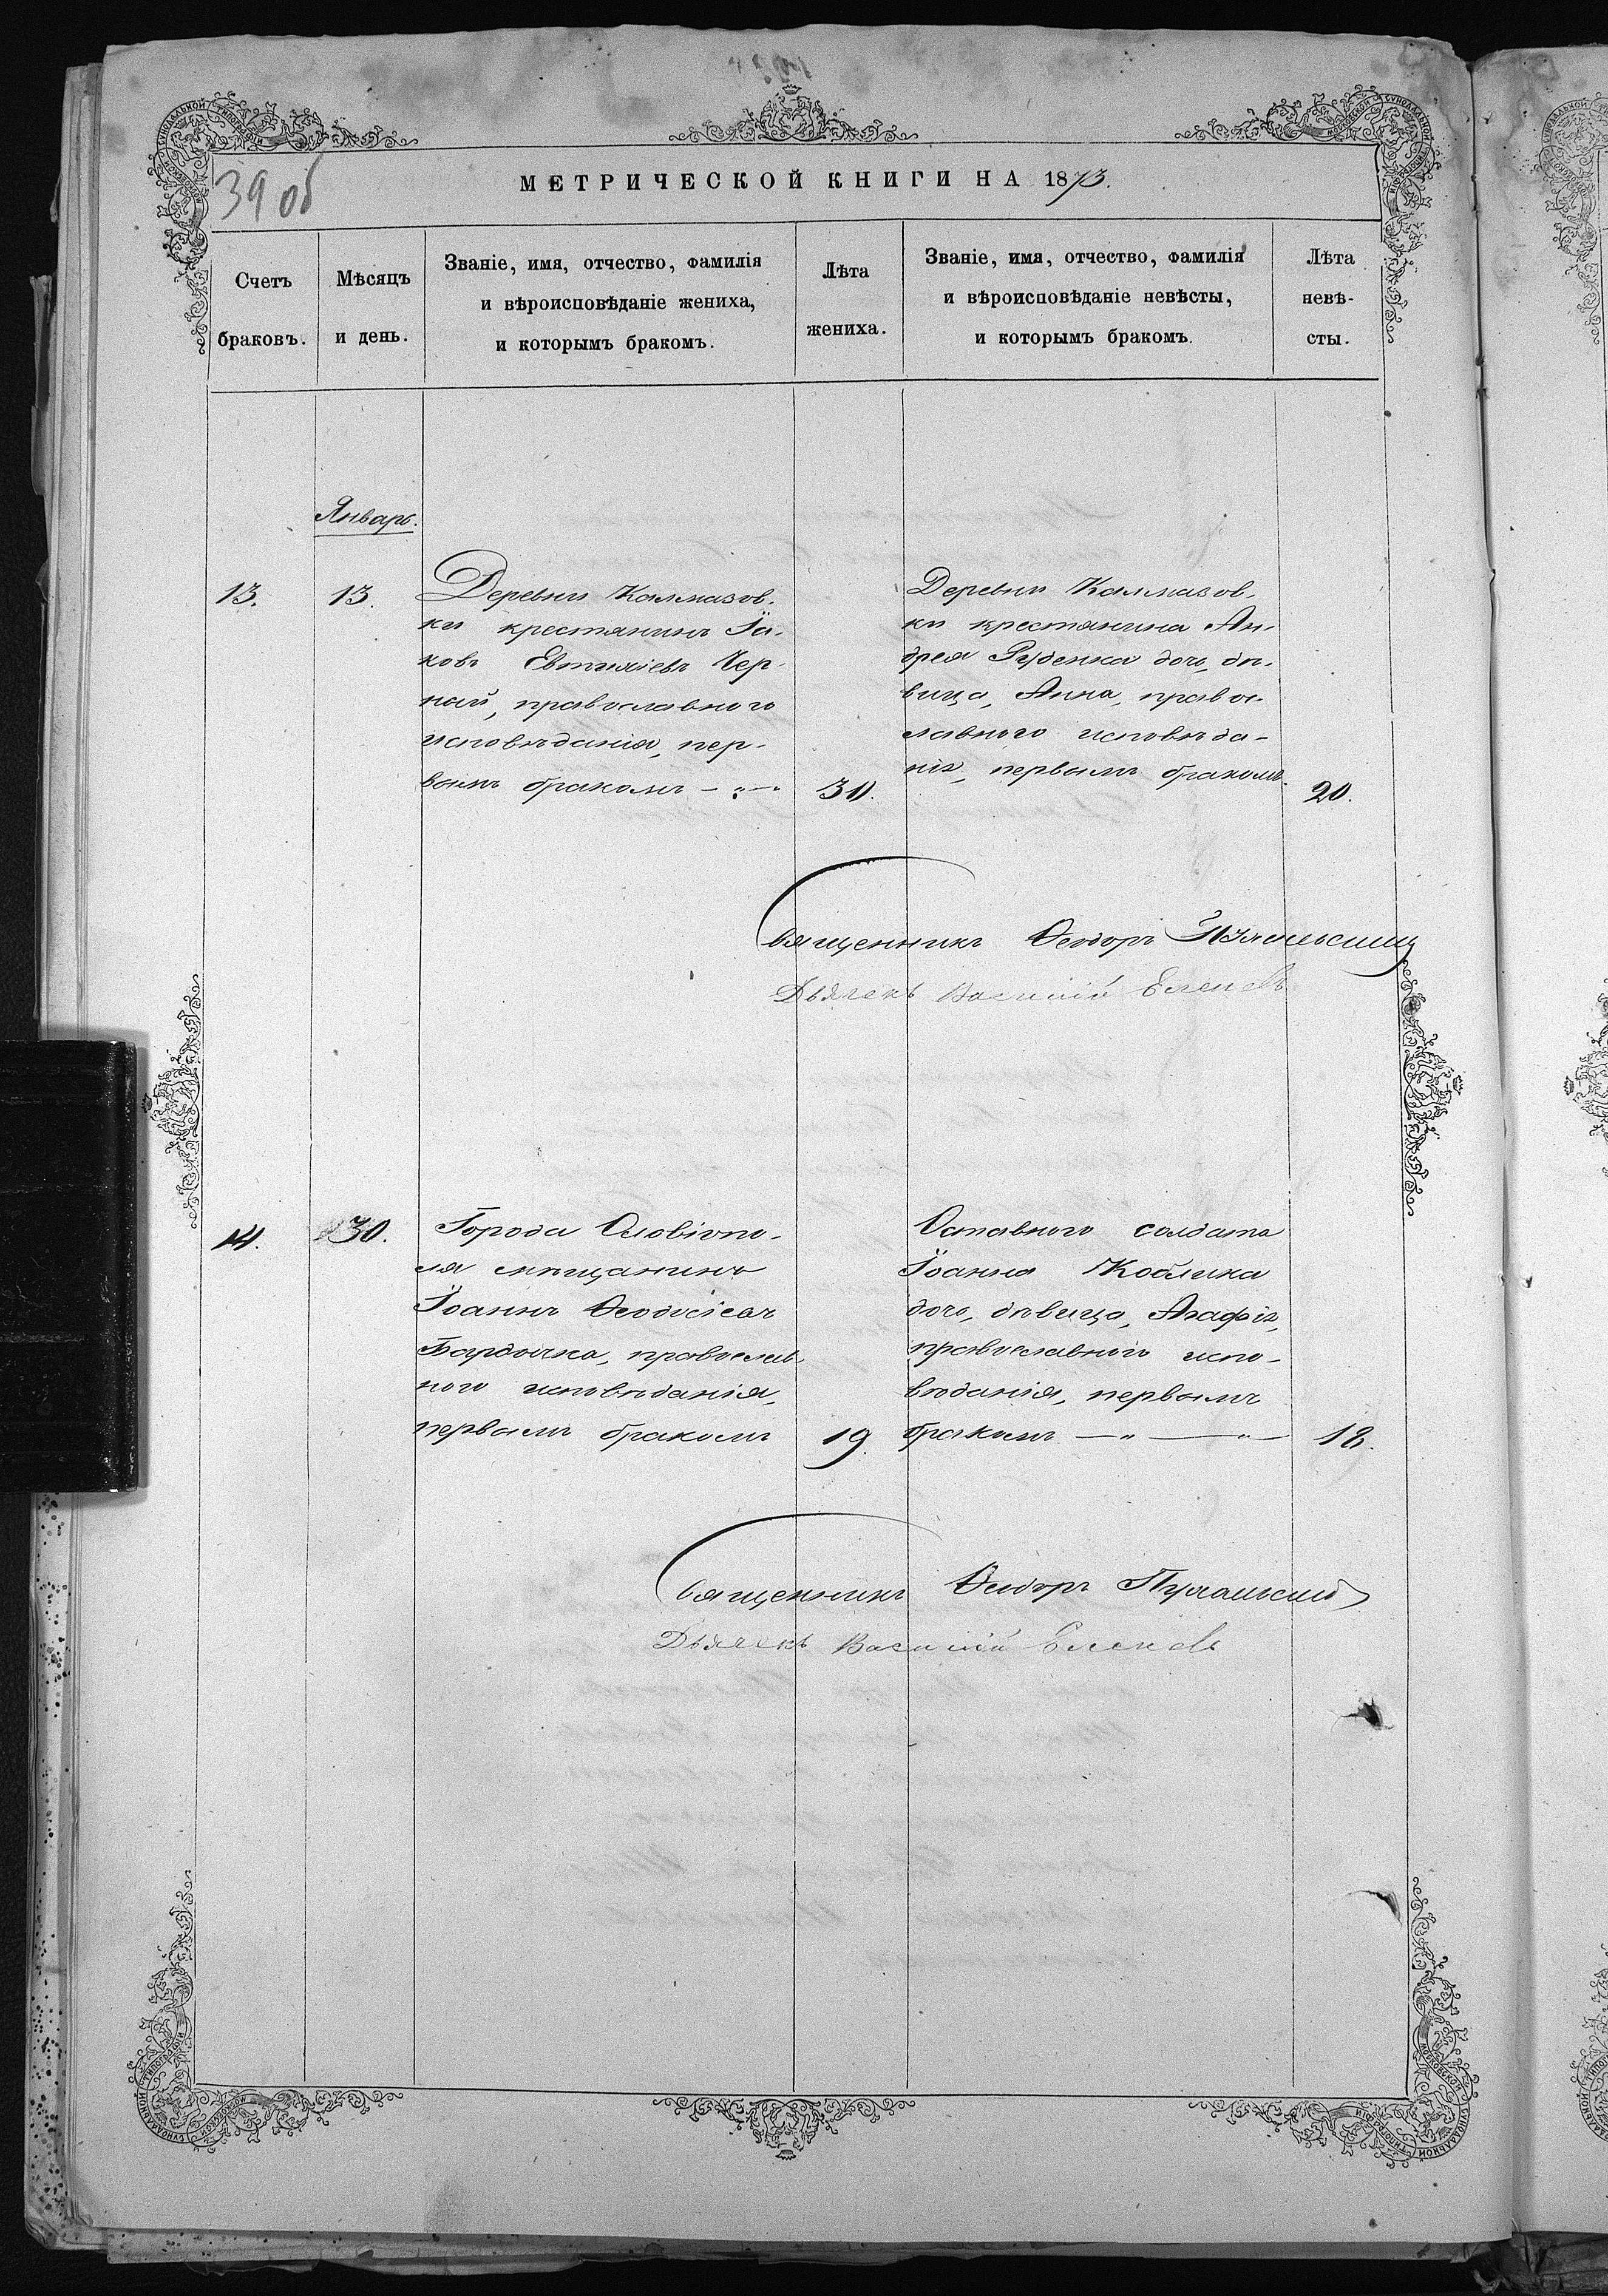 39 об
МЕТРИЧЕСКОЙ КНИГИ НА 1873.
Счетъ браковъ.
Мѣсяцъ и день.
Званіе, имя, отчество, фамилія
и вѣроисповѣданіе жениха,
и которымъ бракомъ.
Лѣта жениха.
Званіе, имя, отчество, фамилія
и вѣроисповѣданіе невѣсты,
и которымъ бракомъ.
Лѣта невѣ-
сты.
Январь.
13.
13.
Деревни Калмазов-
ки крестянинъ Іа-
ковъ Евтихіевъ Чер-
ный, православного
исповѣданія, пер-
вымъ бракомъ
30.
Деревни Калмазов-
ки крестянина Ан-
дрея Руденка дочь, дѣ-
вица, Анна, правос-
лавного исповѣда-
нія, первымъ бракомъ.
20.
Священникъ Ѳеодоръ
Дьячекъ Василій Еленевъ
14.
30.
Города Олвіопо-
ля мѣщанинъ
Іоаннъ Ѳеодосіевъ
православ-
ного исповѣданія,
первымъ бракомъ
19.
Отставного солдата
Іоанна Коблика
дочь, дѣвица, Агафія,
православного испо-
вѣданія, первымъ
бракомъ
18.
Священникъ Ѳеодоръ
Дьячекъ Василій Еленевъ